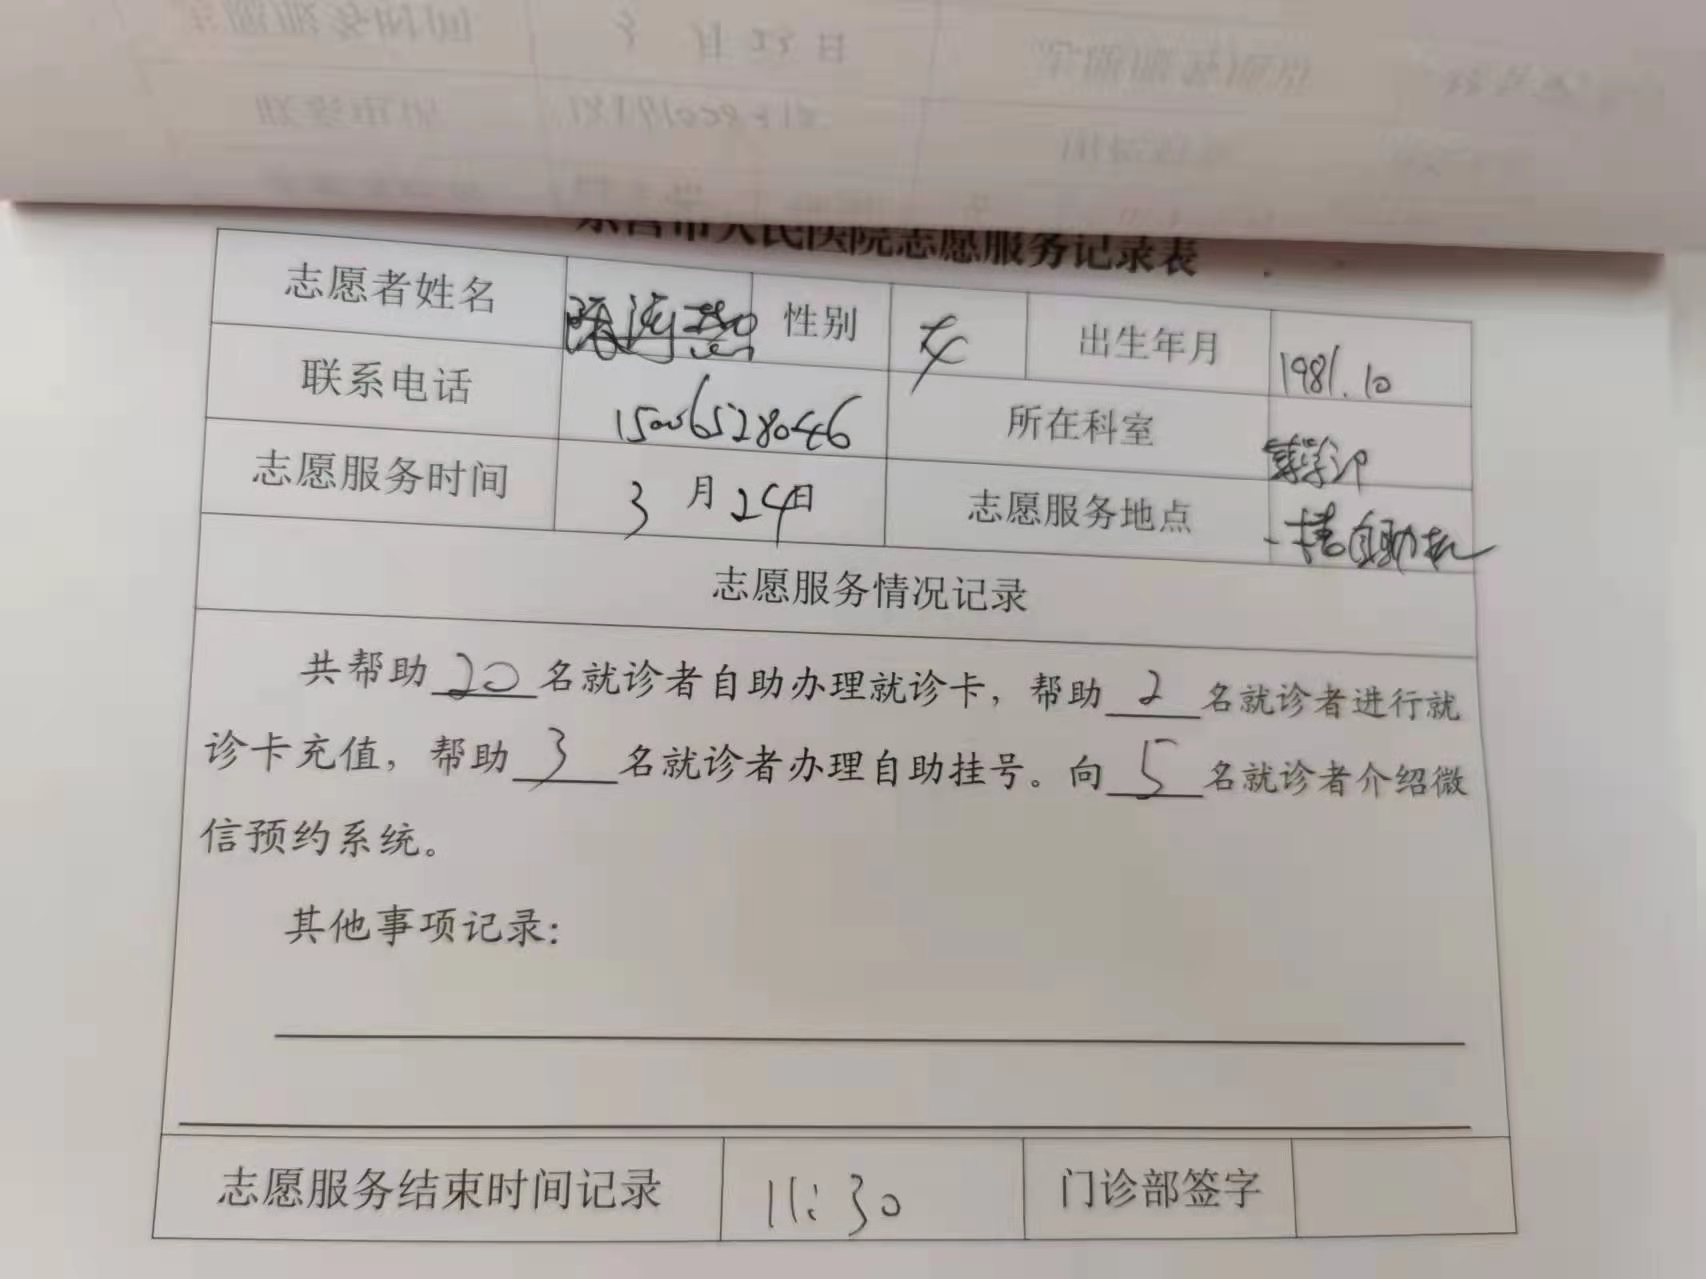 人民医院志愿服务记录表
志愿者姓名 性别 女 出生年月 1981.10
联系电话 15006528046 所在科室
志愿服务时间 3月24日 志愿服务地点 一楼自助机
志愿服务情况记录
共帮助20名就诊者自助办理就诊卡，帮助2名就诊者进行就
诊卡充值，帮助3名就诊者办理自助挂号。向5名就诊者介绍微
信预约系统。
其他事项记录：
志愿服务结束时间记录 11:30 门诊部签字